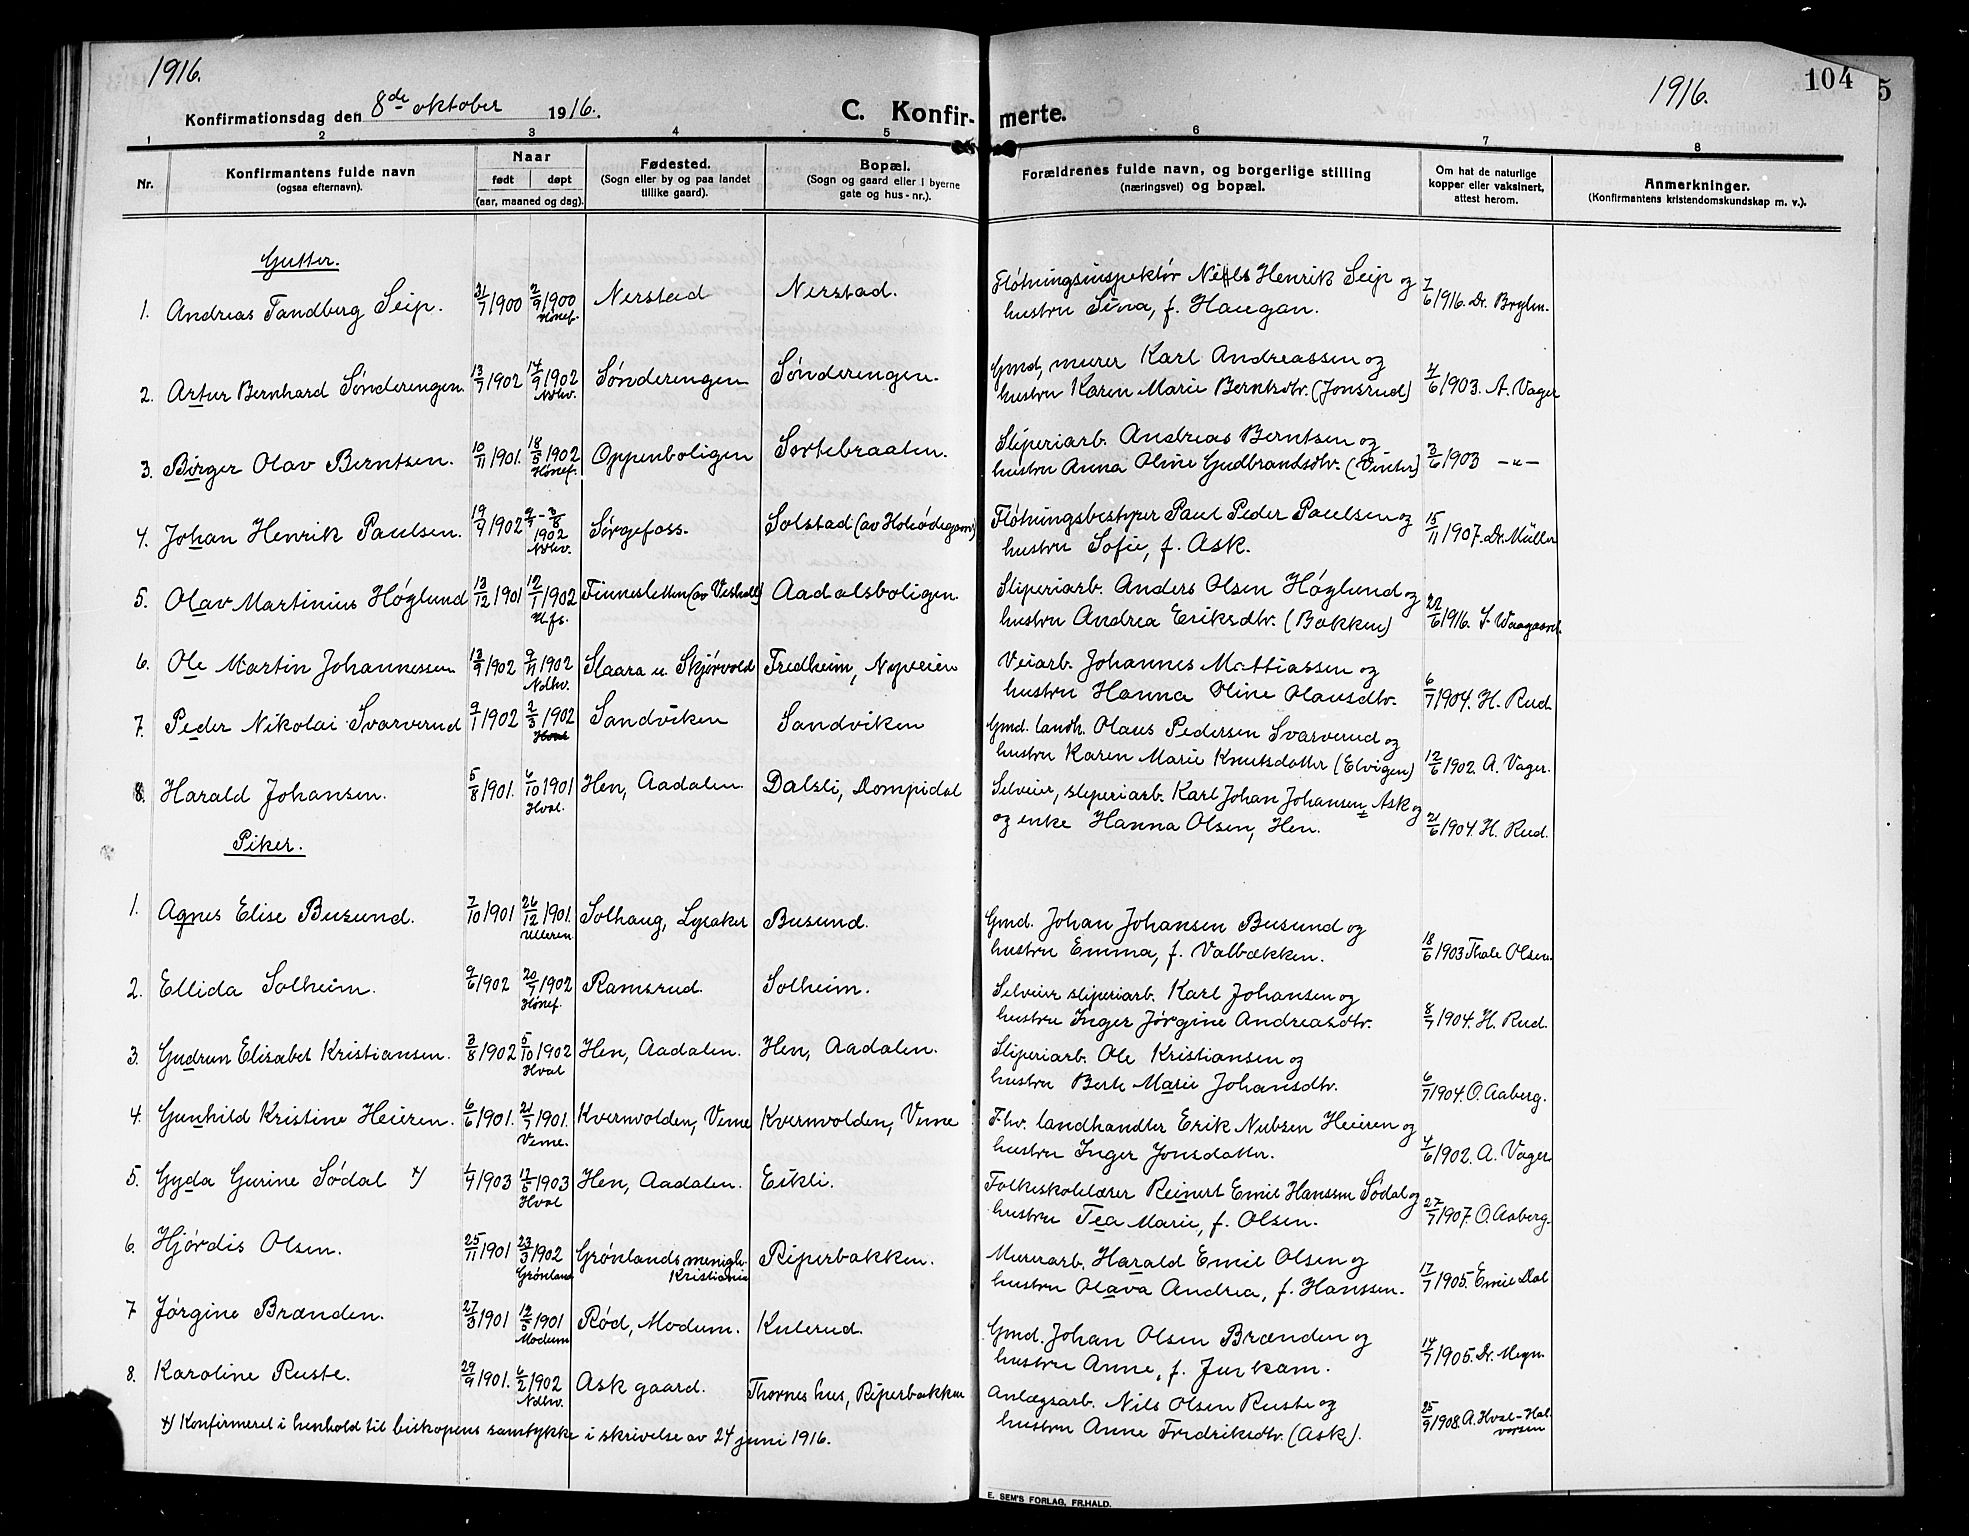 1916.
Konfirmationsdag den 8de oktober 1916.
C. Konfir-merte.
1916.
104
5
1 2 3 4 5 6 7 8
Nr.
Konfirmantens fulde navn
(ogsaa efternavn).
Naar
født døpt
(aar, maaned og dag).
Fødested.
(Sogn eller by og paa landet
tillike gaard).
Bopæl.
(Sogn og gaard eller i byerne
gate og hus-nr.).
Forældrenes fulde navn, og borgerlige stilling
(næringsvei) og bopæl.
Om hat de naturlige
kopper eller vaksinert,
attest herom.
Anmerkninger.
(Konfirmantens kristendomskundskap m. v.).
Gutter.
1. Andreas Tandberg Seip. 31/7 1900 2/9 1900 Hønef. Nerstad Nerstad. Fløtningsinspektør Niels Henrik Seip og
hustru Sina, f. Haugan. 7/6 1916. Dr. Bryhn.
2. Artur Bernhard Sønderengen. 13/7 1902 14/9 1902 Ndhv. Sønderengen Sønderengen. Gmd, murer Karl Andreassen og
hustru Karen Marie Berntsdtr. (Jonsrud) 4/6 1903. A. Vager
3. Birger Olav Berntsen. 10/11 1901. 18/5 1902 Hønef. Oppenboligen Sortebraaten. Sliperiarb. Andreas Berntsen og
hustru Anna Oline Gudbrandsdtr. (Vinter) 3/6 1903 -"-
4. Johan Henrik Paulsen. 19/4 1902 - 3/8 1902 Ndhv. Sørgefoss. Solstad Fløtningsbestyrer Paul Peder Paulsen og
hustru Sofie, f. Ask. 15/11 1907. Dr. Müller
5. Olav Martinius Høglund 13/12 1901 12/1 1902 Finnesletten Aadalsboligen. Sliperiarb. Anders Olsen Høglund og
hustru Andrea Eriksdtr. (Bakken) 22/6 1916. Waagaard.
6. Ole Martin Johannessen 13/9 1902 9/11 1902 Ndhv. Slaara u. Skjørvold Fredheim, Nyveien Veiarb. Johannes Mattiassen og
hustru Hanna Oline Olausdtr. 6/7 1904. H. Rud.
7. Peder Nikolai Svarverud 9/1 1902 2/3 1902 Hval Sandviken Sandviken Gmd. landh. Olaus Pedersen Svarverud og
hustru Karen Marie Knutsdatter (Elvigen) 12/6 1902. A. Vager.
8. Harald Johansen. 5/8 1901. 6/10 1901 Hval. Hen, Aadalen. Dalsli, Dompidal Selveier, sliperiarb. Karl Johan Johansen, Ask og
og enke Hanna Olsen, Hen. 21/6 1904. H. Rud.
Piker.
1. Agnes Elise Busund. 7/10 1901 26/12 1901. Ulleren Solhaug, Lysaker Busund. Gmd. Johan Johansen Busund og
hustru Emma, f. Valbækken. 18/6 1903 Thale Olsen.
2. Ellida Solheim. 9/6 1902 20/7 1902 Hønef. Ramsrud. Solheim. Selveier sliperiarb. Karl Johansen og
hustru Inger Jørgine Andreasdtr. 8/7 1904. H. Rud.
3. Gudrun Elisabet Kristiansen. 3/8 1902 5/10 1902 Hval Hen, Aadalen. Hen, Aadalen. Sliperiarb. Ole Kristiansen og
hustru Berte Marie Johansdtr. 6/7 1904. O. Aaberg.
4. Gunhild Kristine Heieren. 6/6 1901. 21/7 1901. Veme. Kvernvolden, Veme Kvernvolden, Veme Fhv. landhandler Erik Nubsen Heieren og
hustru Inger Jonsdatter. 4/6 1902. A. Vager.
5. Gyda Gurine Sødal x) 1/4 1903 12/5 1903 Hval Hen, Aadalen. Eikli. Folkeskolelærer Reinert Emil Hanssen Sødal og
hustru Tea Marie, f. Olsen. 27/7 1907. O. Aaberg.
6. Hjørdis Olsen. 25/11 1901 23/3 1902 Grønland Grønlands menigh. Kristiania Riperbakken. Murerarb. Harald Emil Olsen og
hustru Olava Andrea, f. Hanssen. 17/7 1905. Emil Dal
7 Jørgine Brænden. 27/3 1901 12/5 1901 Modum Rød, Modum. Kulerud. Gmd. Johan Olsen Brænden og
hustru Anne, f. Jurkam. 14/7 1905. Dr. Meyn.
8. Karoline Ruste. 29/9 1901. 6/2 1902 Ndhv. Ask gaard. Thornes hus, Riperbakken Anlægsarb. Nils Olsen Ruste og
hustru Anne Fredriksdtr. (Ask). 25/9 1908. A. Hval-Halvorsen
x) Konfirmeret i henhold til biskopens samtykke i skrivelse av 24 juni 1916.
E. SEM'S FORLAG, FR.HALD.